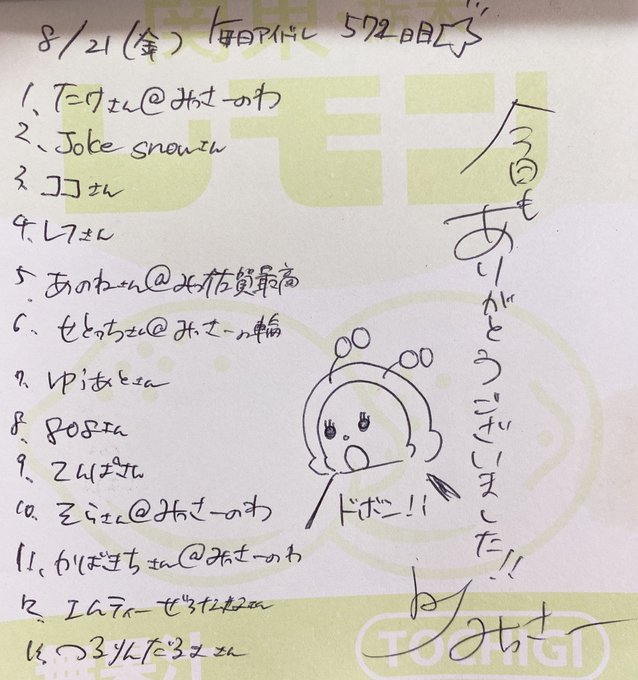 8/21(金) 毎日アイドル 572日目☆
1、たけさん@みっさーのわ
2、Joke snowさん
3、ココさん
4、レフさん
5、あのねさん@みっ佐賀最高
6、せとっちさん@みっさーの輪
7、ゆうあとさん
8、808さん
9、てんぱさん
10、そらさん@みっさーのわ
11、かばきちさん@みっさーのわ
12、エムティーぜろ
13、つるりんだるまさん
ドボン!!
今日もありがとうございました!!
by みっさー
関東 栃木
レモン
無果汁
TOCHIGI